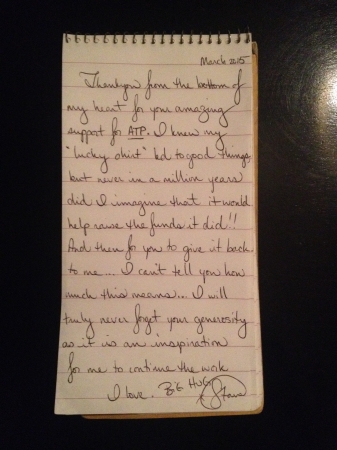 March 2015
Thank you from the bottom of
my heart for your amazing
support for ATP. I knew my
"lucky shirt" led to good things
but never in a million years
did I imagine that it would
help raise the funds it did!!
And then for you to give it back
to me... I can't tell you how
much this means... I will
truly never forget your generosity
as it is an inspiration
for me to continue the work
I love. BIG HUG